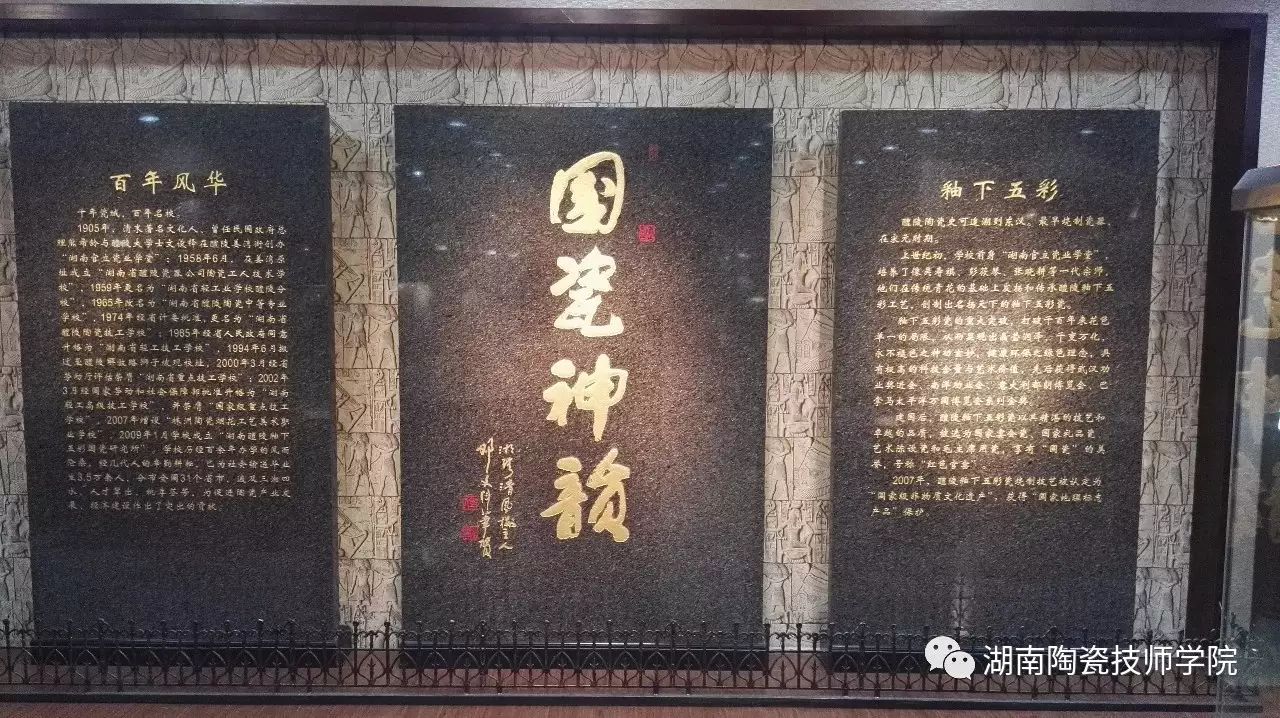 百年风华
千年瓷城，百年名校。
1905年，清末著名文化人、曾任民国政府总
理熊希龄与醴陵大学士文俊铎在醴陵姜湾街创办
“湖南官立瓷业学堂”；1958年6月，在姜湾原
址成立“湖南省醴陵瓷器公司陶瓷工人技术学
校”，1959年更名为“湖南省轻工业学校醴陵分
校”，1965年改名为“湖南省醴陵陶瓷中等专业
学校”，1974年经省计委批准，更名为“湖南省
醴陵陶瓷技工学校”；1985年经省人民政府同意
升格为“湖南省轻工技工学校”，1994年6月搬
迁至醴陵解放路狮子坡现校址，2000年3月经省
劳动厅评估荣膺“湖南省重点技工学校”；2002
年3月经国家劳动和社会保障部批准升格为“湖南
轻工高级技工学校”，并荣膺“国家级重点技工
学校”，2007年增设“株洲陶瓷烟花工艺美术职
业学校”，2009年1月学校成立“湖南醴陵釉下
五彩国瓷研究所”，学校历经百余年办学的风雨
沧桑，经几代人的辛勤耕耘，已为社会输送毕业
生3.5万余人，分布全国31个省市，遍及三湘四
水，人才辈出，桃李芬芳，为促进陶瓷产业发
展、经济建设作出了突出的贡献。
国瓷神韵
釉下五彩
醴陵陶瓷史可追溯到东汉，最早烧制瓷器，
在宋元时期。
上世纪初，学校前身“湖南官立瓷业学堂”，
培养了像吴寿祺、彭筱琴、张晓耕等一代宗师，
他们在传统青花的基础上发扬和传承醴陵釉下五
彩工艺，创制出名扬天下的釉下五彩瓷。
釉下五彩瓷的重大突破，打破千百年来花色
单一的局限，从而呈现出晶莹润泽、千变万化、
永不褪色之神功意妙，健康环保之绿色理念，具
有极高的科技含量与艺术价值，先后获得武汉劝
业奖进会、南洋劝业会、意大利都朗博览会、巴
拿马太平洋万国博览会系列金奖。
建国后，醴陵釉下五彩瓷以其精湛的技艺和
卓越的品质，被选为国家宴会瓷、国家礼品瓷、
艺术陈设瓷和毛主席用瓷，享有“国瓷”的美
誉，号称“红色官窑”。
2007年，醴陵釉下五彩瓷烧制技艺被认定为
“国家级非物质文化遗产”，获得“国家地理标志
产品”保护。
湖南陶瓷技师学院